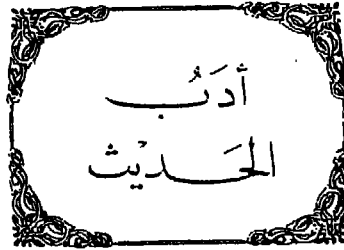 أَدَبُ
الحَديْث